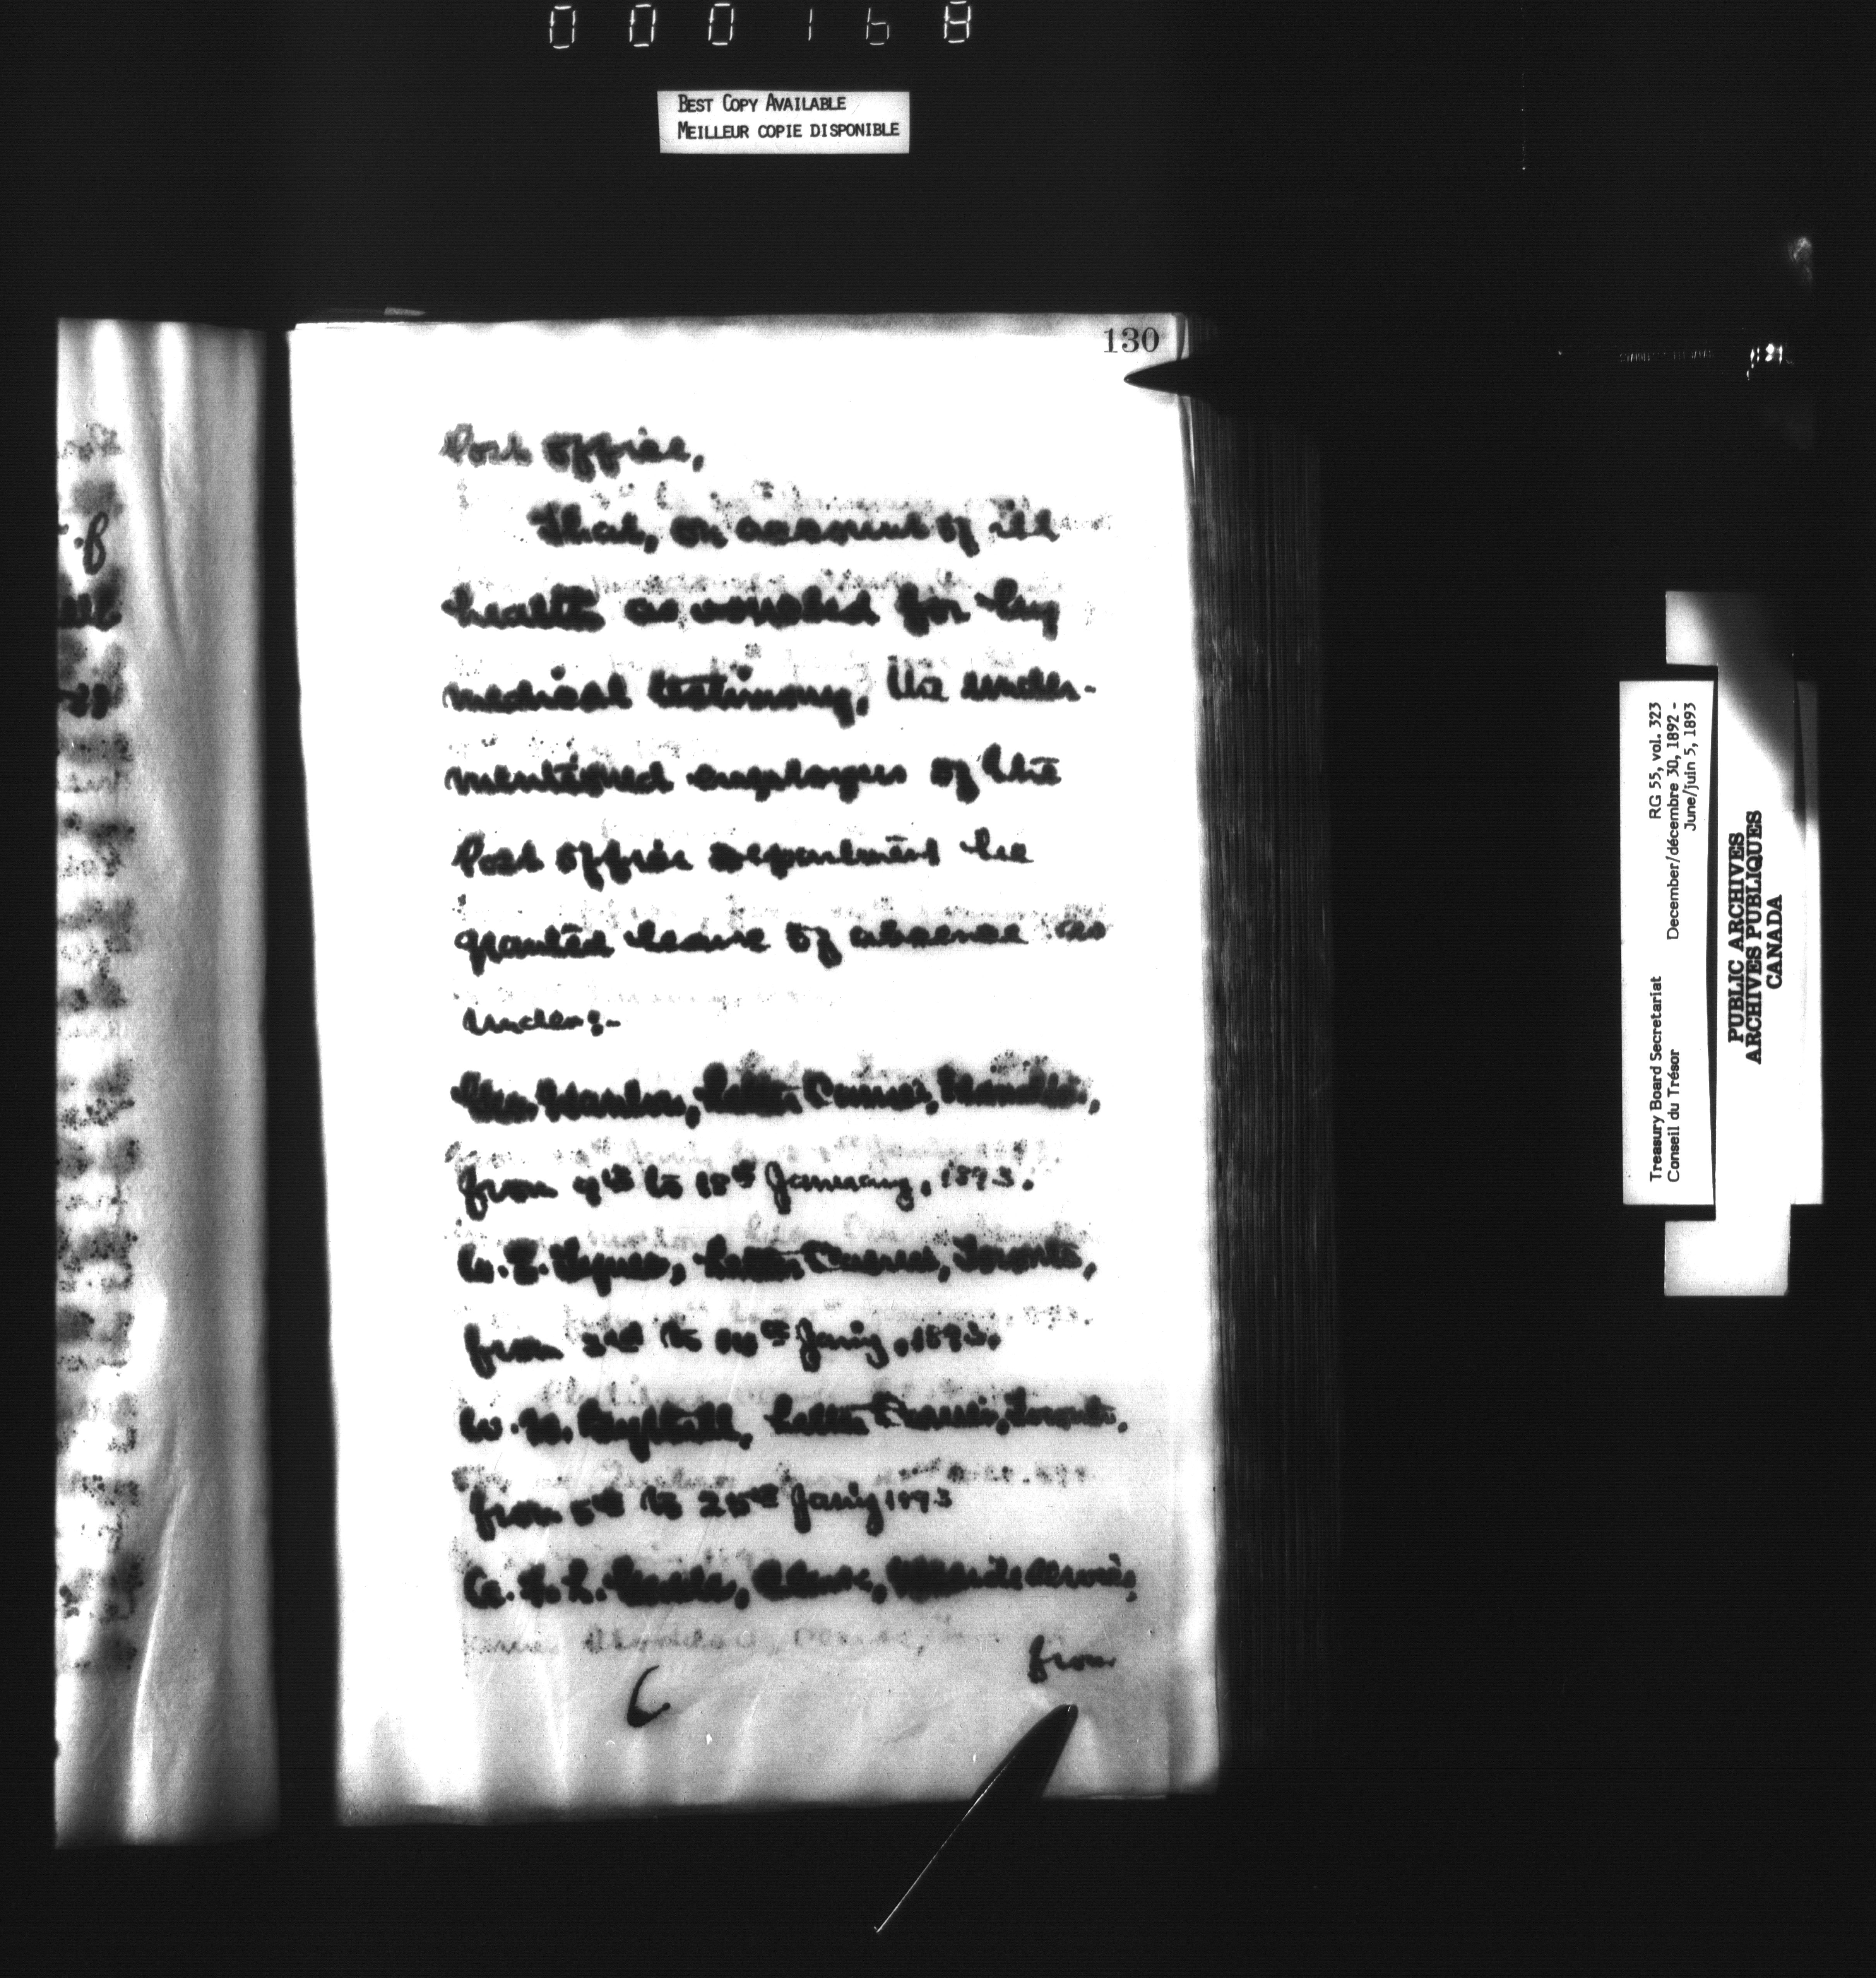 000168
BEST COPY AVAILABLE
MEILLEUR COPIE DISPONIBLE
130
Post Office,
That, on account of ill
health as vouched for by
medical testimony, the under-
mentioned employees of the
Post Office Department be
granted leave of absence as
under:-
Letter Carrier, Hamilton,
from 9th to 18th January, 1893.
Letter Carrier, Toronto,
from 3rd to Jan'y, 1893.
W. Letter Carrier, Toronto,
from 5th to 25th Jan'y 1893
Clerk, Outside Service,
from
Treasury Board Secretariat RG 55, vol. 323
Conseil du Trésor December/décembre 30, 1892 -
June/juin 5, 1893
PUBLIC ARCHIVES
ARCHIVES PUBLIQUES
CANADA